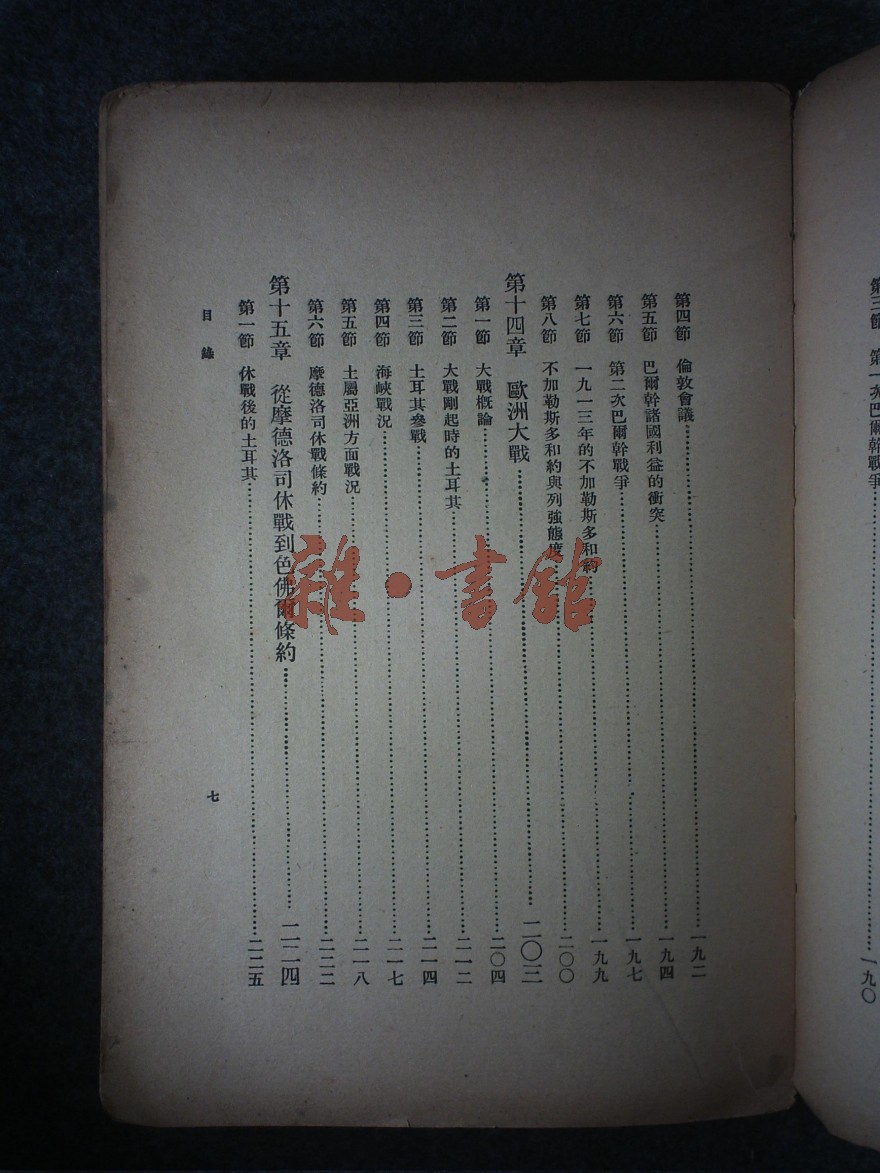 第三節 第一次巴爾幹戰爭……一九〇
第四節 倫敦會議……一九二
第五節 巴爾幹諸國利益的衝突……一九四
第六節 第二次巴爾幹戰爭……一九七
第七節 一九一三年的不加勒斯多和約……一九九
第八節 不加勒斯多和約與列強態度……二〇〇
第十四章 歐洲大戰……二〇三
第一節 大戰概論……二〇四
第二節 大戰剛起時的土耳其……二一二
第三節 土耳其參戰……二一四
第四節 海峽戰況……二一七
第五節 土屬亞洲方面戰況……二一八
第六節 摩德洛司休戰條約……二二二
第十五章 從摩德洛司休戰到色佛爾條約……二二四
第一節 休戰後的土耳其……二二五
目錄 七
雜·書館